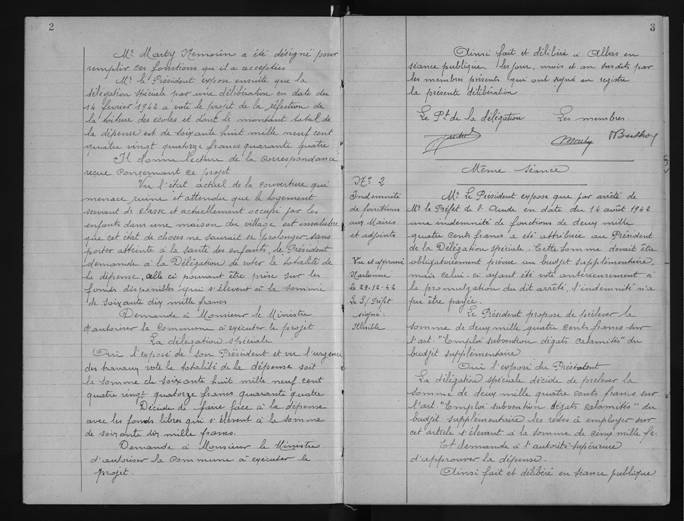 2
Mr Marty Nemorin a été désigné pour
remplir ces fonctions qu'il a acceptées
Mr le Président expose ensuite que la
délégation spéciale par une délibération en date du
14 février 1942 a voté le projet de la réfection de
la toiture des écoles et dont le montant total de
la dépense est de soixante huit mille neuf cent
quatre vingt quatorze francs quarante quatre
Il donne lecture de la correspondance
reçue concernant ce projet
Vu l'état actuel de la couverture qui
menace ruine et attendu que le logement
servant de classe et actuellement occupé par les
enfants dans une maison du village est insalubre
que cet état de choses ne saurait se prolonger sans
porter atteinte à la santé des enfants, le Président
demande à la Délégation de voter la totalité de
la dépense, celle ci pouvant être prise sur les
fonds disponibles qui s'élèvent à la somme
de soixante dix mille francs
Demande à Monsieur le Ministre
d'autoriser la Commune à exécuter le projet
La délégation spéciale
Ouï l'exposé de son Président et vu l'urgence
des travaux vote la totalité de la dépense soit
la somme de soixante huit mille neuf cent
quatre vingt quatorze francs quarante quatre
Décide de faire face à la dépense
avec les fonds libres qui s'élèvent à la somme
de soixante dix mille francs.
Demande à Monsieur le Ministre
d'autoriser la Commune à exécuter le
projet
3
Ainsi fait et délibéré à Albas en
séance publique les jour, mois et an susdits par
les membres présents qui ont signé au registre
la présente délibération
Le Pt de la délégation Les membres
Marty Barthas
Même séance
No 2
Indemnité
de fonctions
aux Maires
et adjoints
Vu et approuvé
Narbonne
le 28-12-42
Le S/ Préfet
signé
Mr le Président expose que par arrêté de
Mr le Préfet de l'Aude en date du 14 août 1942
une indemnité de fonctions de deux mille
quatre cents francs a été attribuée au Président
de la Délégation spéciale. Cette somme devait être
obligatoirement prévue au budget supplémentaire
mais celui-ci ayant été voté antérieurement à
la promulgation du dit arrêté, l'indemnité n'a
pu être payée.
Le Président propose de prélever la
somme de deux mille quatre cents francs sur
l'art "Emploi subvention dégâts calamités" du
budget supplémentaire
Ouï l'exposé du Président
La délégation spéciale décide de prélever la
somme de deux mille quatre cents francs sur
l'art "Emploi subvention dégâts calamités" du
budget supplémentaire le crédit à employer sur
cet article s'élevant à la somme de cinq mille fs.
Et demande à l'autorité supérieure
d'approuver la dépense.
Ainsi fait et délibéré en séance publique